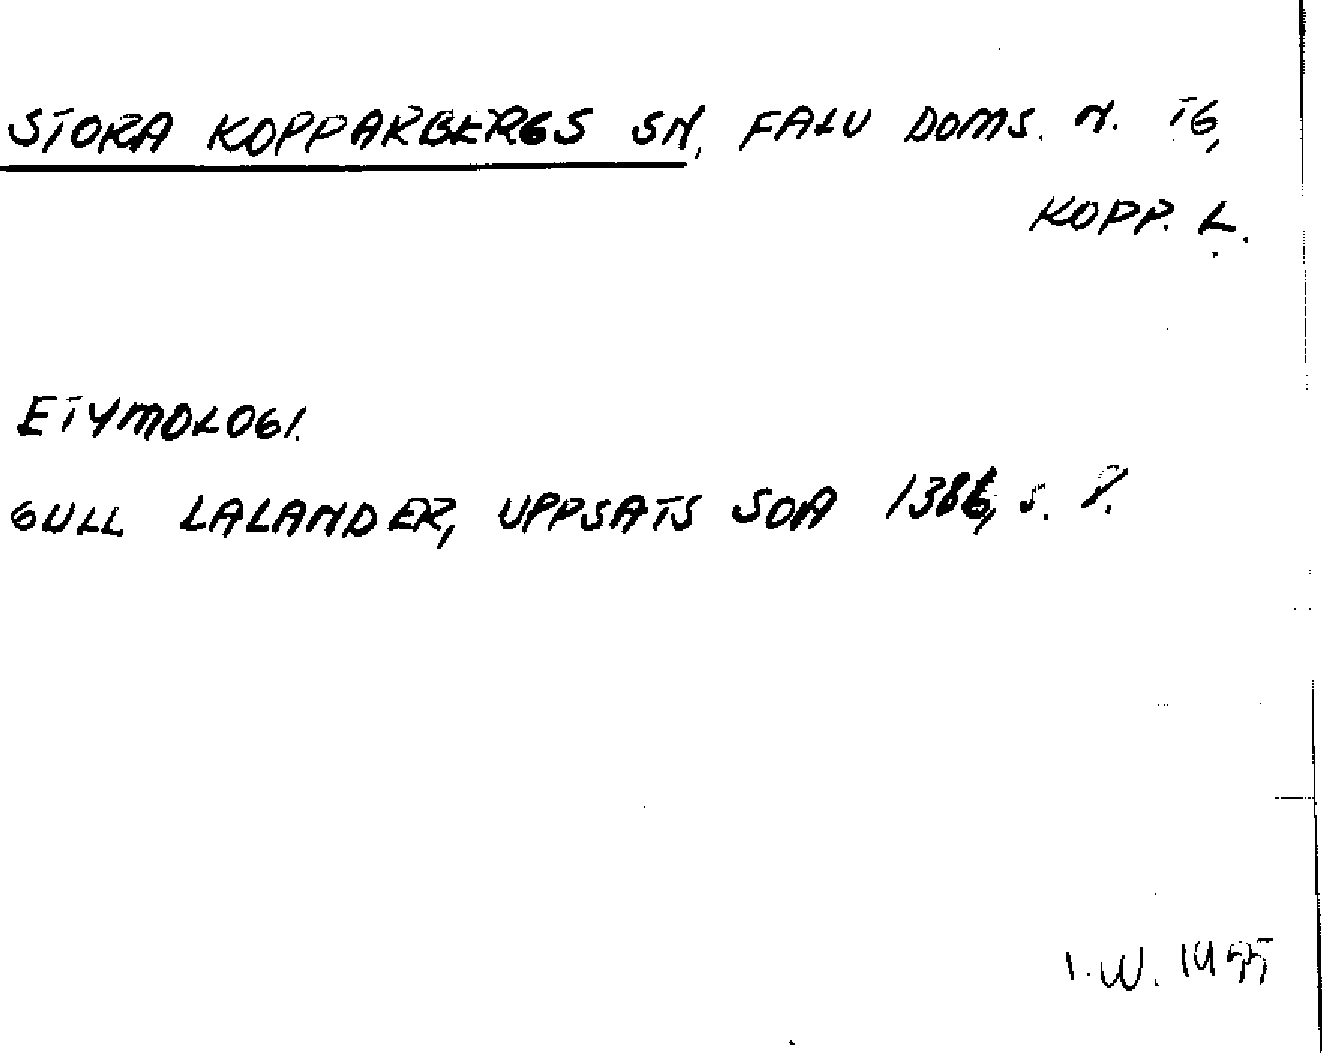 STORA KOPPARBERGS SN, FALU DOMS. N. TG,
KOPP. L.
ETYMOLOGI.
GULL LALANDER, UPPSATS SOA 1386, S.
I.W. 19